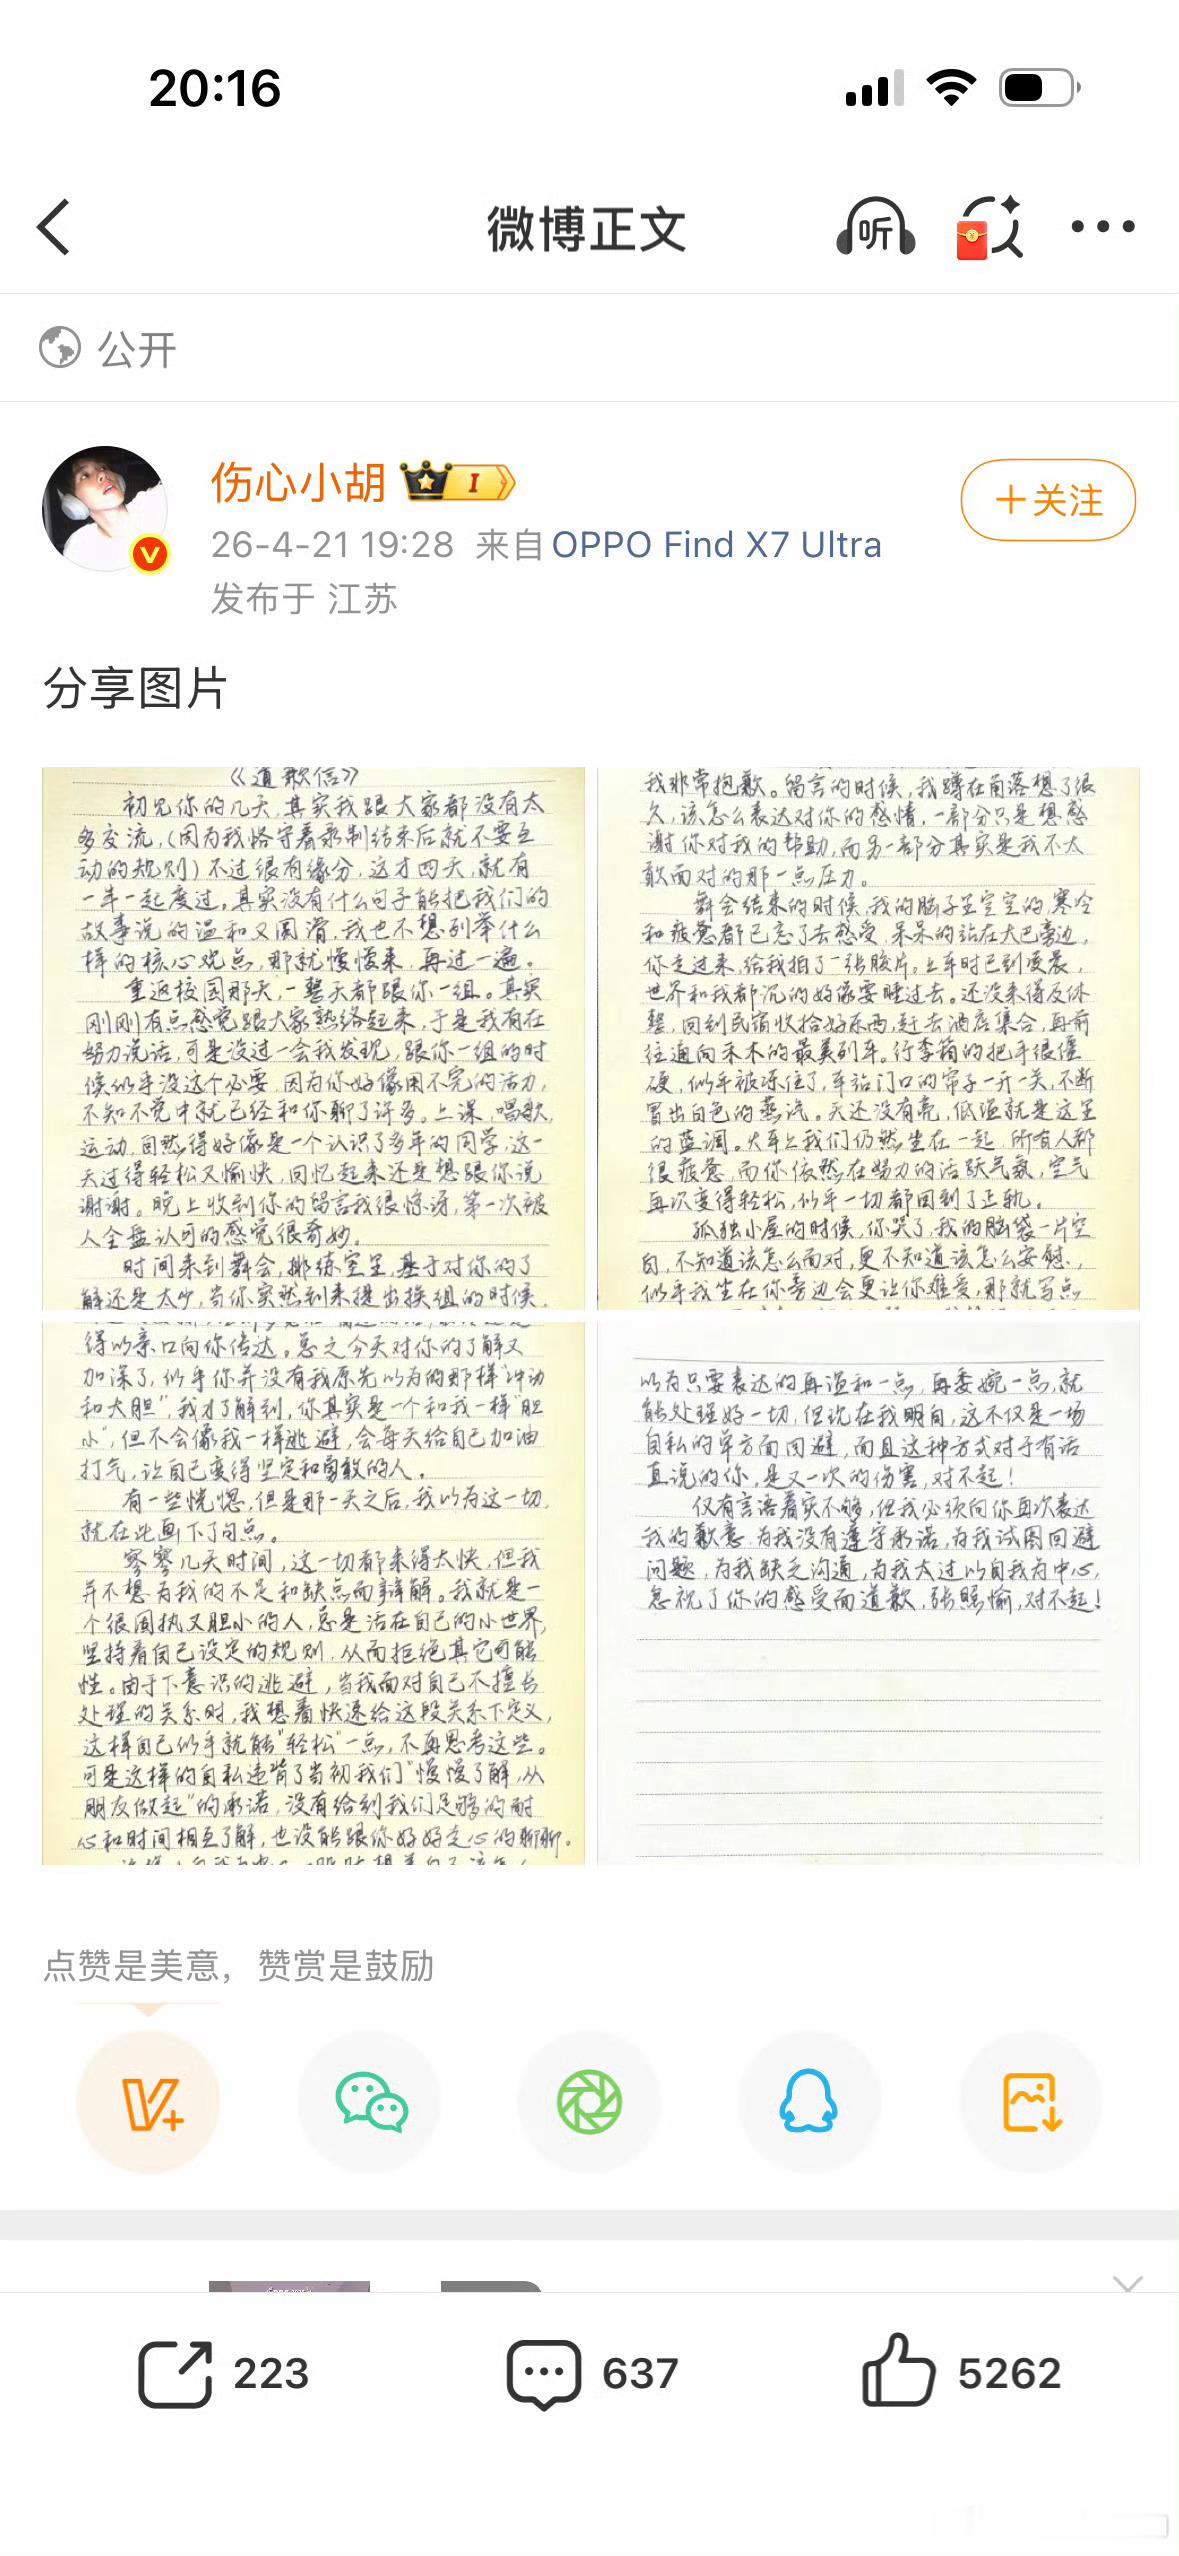 20:16
微博正文
听
公开
伤心小胡
I
+关注
26-4-21 19:28 来自 OPPO Find X7 Ultra
发布于 江苏
分享图片
《道歉信》
初见你的几天,其实我跟大家都没有太
多交流,(因为我恪守着录制结束后就不要互
动的规则)不过很有缘分,这才四天,就有
一半一起度过。其实没有什么句子能把我们的
故事说的温和又圆滑,我也不想列举什么
样的核心观点,那就慢慢来,再过一遍。
重返校园那天,一整天都跟你一组。其实
刚刚有点感觉跟大家熟络起来,于是我有在
努力说话,可是没过一会我发现,跟你一组的时
候似乎没这个必要,因为你好像用不完的活力,
不知不觉中就已经和你聊了许多。上课,唱歌,
运动,自然得好像是一个认识了多年的同学,这一
天过得轻松又愉快,回忆起来还是想跟你说
谢谢。晚上收到你的留言我很惊讶,第一次被
人全盘认可的感觉很奇妙。
时间来到舞会,排练室里,基于对你的了
解还是太少,当你突然到来提出换组的时候,
我非常抱歉。留言的时候,我蹲在角落想了很
久,该怎么表达对你的感情,一部分只是想感
谢你对我的帮助,而另一部分其实是我不太
敢面对的那一点压力。
舞会结束的时候,我的脑子里空空的,寒冷
和疲惫都已忘了去感受,呆呆的站在大巴旁边,
你走过来,给我拍了一张胶片。上车时已到凌晨,
世界和我都沉的好像要睡过去。还没来得及休
整,回到民宿收拾好东西,赶去酒店集合,再前
往通向禾木的最美列车。行李箱的把手很僵
硬,似乎被冻住了,车站门口的帘子一开一关,不断
冒出白色的蒸汽。天还没有亮,低温就是这里
的蓝调。火车上我们仍然坐在一起,所有人都
很疲惫,而你依然在努力的活跃气氛,空气
再次变得轻松,似乎一切都回到了正轨。
孤独小屋的时候,你哭了,我的脑袋一片空
白,不知道该怎么面对,更不知道该怎么安慰,
似乎我坐在你旁边会更让你难受,那就写点
得以亲口向你传达。总之今天对你的了解又
加深了,似乎你并没有我原先以为的那样“冲动
和大胆”,我才了解到,你其实是一个和我一样“胆
小”,但不会像我一样逃避,会每天给自己加油
打气,让自己变得坚定和勇敢的人。
有一些恍惚,但是那一天之后,我以为这一切,
就在此画下了句点。
寥寥几天时间,这一切都来得太快,但我
并不想为我的不足和缺点而辩解。我就是一
个很固执又胆小的人,总是活在自己的小世界,
坚持着自己设定的规则,从而拒绝其它可能
性。由于下意识的逃避,当我面对自己不擅长
处理的关系时,我想着快速给这段关系下定义,
这样自己似乎就能“轻松”一点,不再思考这些。
可是这样的自私违背了当初我们“慢慢了解,从
朋友做起”的承诺,没有给到我们足够的耐
心和时间相互了解,也没能跟你好好走心的聊聊。
以为只要表达的再温和一点,再委婉一点,就
能处理好一切,但现在我明白,这不仅是一场
自私的单方面回避,而且这种方式对于有话
直说的你,是又一次的伤害,对不起!
仅有言语着实不够,但我必须向你再次表达
我的歉意,为我没有遵守承诺,为我试图回避
问题,为我缺乏沟通,为我太过以自我为中心,
忽视了你的感受而道歉,张照愉,对不起!
点赞是美意,赞赏是鼓励
223
637
5262